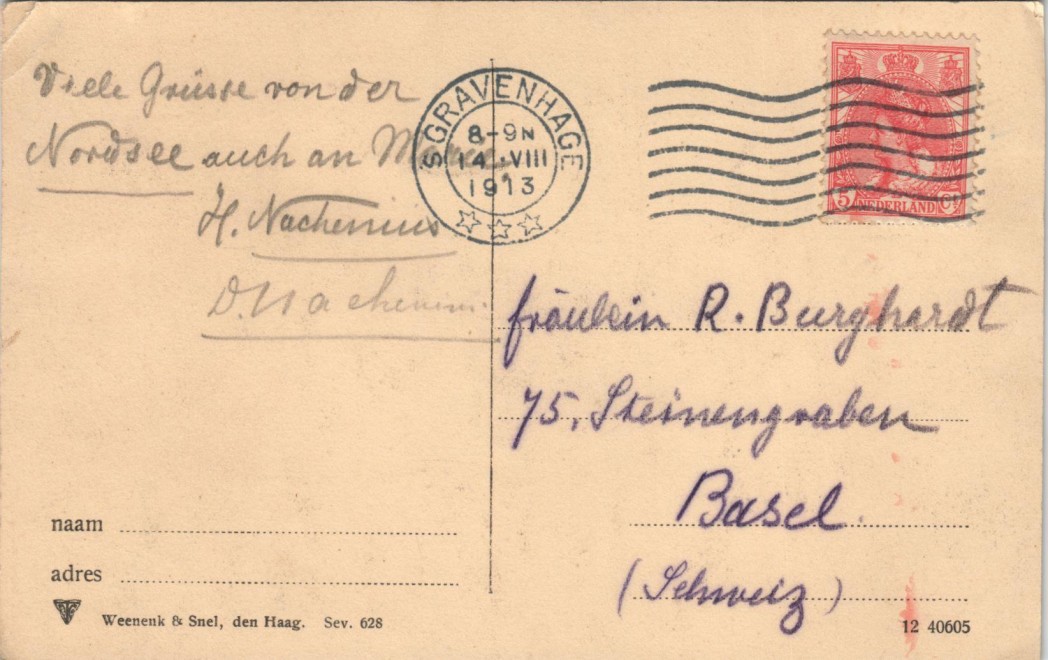 Viele Grüsse von der
Nordsee auch an
H. Nachenius
D. Nachenius
S GRAVENHAGE
8-9N
14 VIII
1913
5 NEDERLAND Ct
fräulein R. Burghardt
75, Steinengraben
Basel.
(Schweiz)
naam
adres
Weenenk & Snel, den Haag. Sev. 628
12 40605